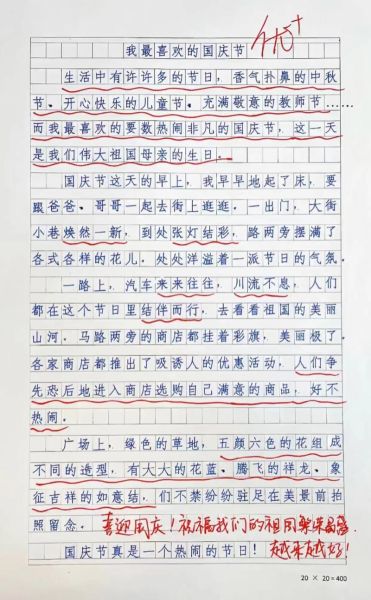 我最喜欢的国庆节
优+
生活中有许许多的节日,香气扑鼻的中秋
节、开心快乐的儿童节、充满敬意的教师节……
而我最喜欢的要数热闹非凡的国庆节,这一天
是我们伟大祖国母亲的生日。
国庆节这天的早上,我早早地起了床,要
跟爸爸、哥哥一起去街上逛逛。一出门,大街
小巷焕然一新,到处张灯结彩,路两旁摆满了
各式各样的花儿。处处洋溢着一派节日的气氛。
一路上,汽车来来往往,川流不息,人们
都在这个节日里结伴而行,去看看祖国的美丽
山河。马路两旁的商店都挂着彩旗,美丽极了。
各家商店都推出了吸诱人的优惠活动,人们争
先恐后地进入商店选购自己满意的商品,好不
热闹。
广场上,绿色的草地,五颜六色的花组成
不同的造型,有大大的花篮、腾飞的祥龙、象
征吉祥的如意结,们不禁纷纷驻足在美景前拍
照留念。
喜迎国庆!祝福我们的祖国繁荣昌盛,
越来越好!
国庆节真是一个热闹的节日!
20 × 20=400